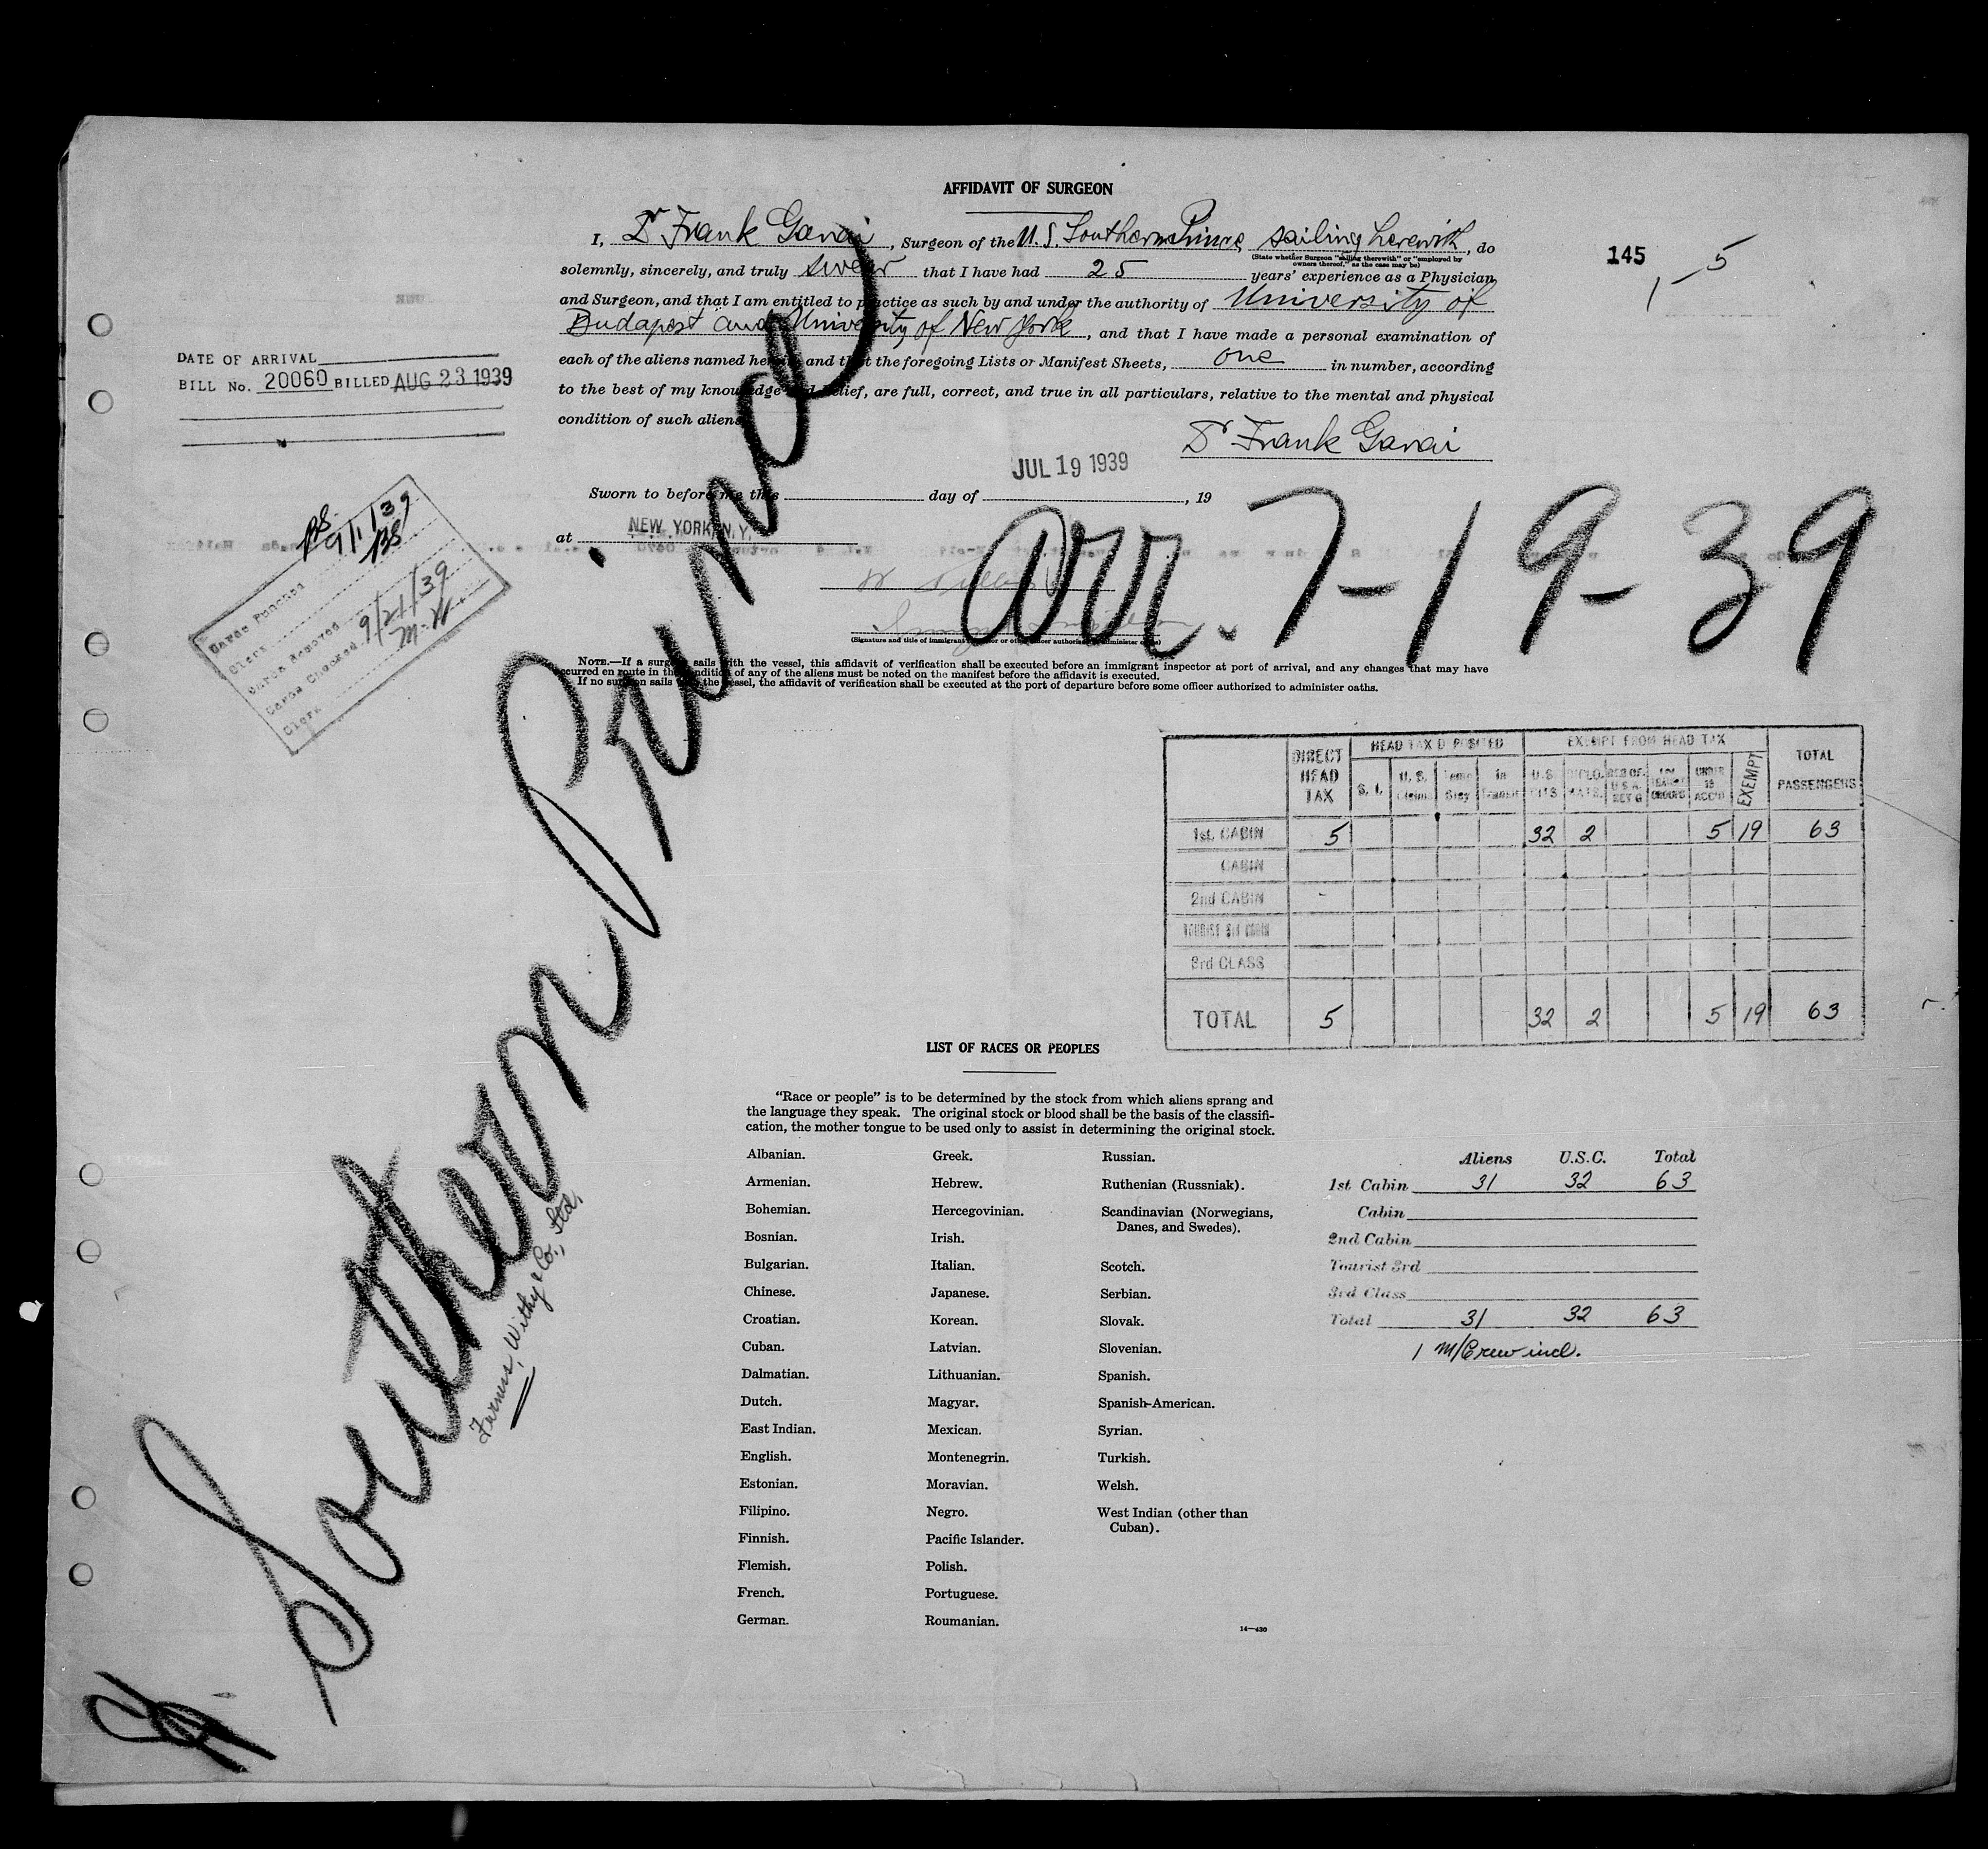 AFFIDAVIT OF SURGEON
I, Dr Frank Garai, Surgeon of the M.S. Southern Prince, sailing herewith, do
(State whether Surgeon "sailing therewith" or "employed by
owners thereof," as the case may be)
solemnly, sincerely, and truly swear that I have had 25 years' experience as a Physician
and Surgeon, and that I am entitled to practice as such by and under the authority of University of
Budapest and University of New York, and that I have made a personal examination of
each of the aliens named herein and that the foregoing Lists or Manifest Sheets, one in number, according
to the best of my knowledge and belief, are full, correct, and true in all particulars, relative to the mental and physical
condition of such aliens
Dr Frank Garai
JUL 19 1939
Sworn to before me this day of , 19
at NEW YORK, N.Y.
(Signature and title of immigrant inspector or other officer authorized to administer oaths)
NOTE.—If a surgeon sails with the vessel, this affidavit of verification shall be executed before an immigrant inspector at port of arrival, and any changes that may have
occurred en route in the condition of any of the aliens must be noted on the manifest before the affidavit is executed.
If no surgeon sails with the vessel, the affidavit of verification shall be executed at the port of departure before some officer authorized to administer oaths.
145
1-5
DATE OF ARRIVAL
BILL No. 20060 BILLED AUG 23 1939
BS.
9/1/39
BS
Cards Punched
Clerk
Cards Removed
Cards Checked 9/21/39
Clerk M.W.
Southern Prince
arr. 7-19-39
Furness, Withy & Co., Ltd.
DIRECT HEAD TAX
HEAD TAX DEPOSITED
EXEMPT FROM HEAD TAX
TOTAL PASSENGERS
S. I. U. S. Claims Temp Stay In Transit U.S. CITS DIPLOMATS RES OF U S A RET G UNDER 16 ACC'D EXEMPT
1st CABIN 5 32 2 5 19 63
CABIN
2nd CABIN
TOURIST 3rd CABIN
3rd CLASS
TOTAL 5 32 2 5 19 63
LIST OF RACES OR PEOPLES
"Race or people" is to be determined by the stock from which aliens sprang and
the language they speak. The original stock or blood shall be the basis of the classifi-
cation, the mother tongue to be used only to assist in determining the original stock.
Albanian.
Armenian.
Bohemian.
Bosnian.
Bulgarian.
Chinese.
Croatian.
Cuban.
Dalmatian.
Dutch.
East Indian.
English.
Estonian.
Filipino.
Finnish.
Flemish.
French.
German.
Greek.
Hebrew.
Hercegovinian.
Irish.
Italian.
Japanese.
Korean.
Latvian.
Lithuanian.
Magyar.
Mexican.
Montenegrin.
Moravian.
Negro.
Pacific Islander.
Polish.
Portuguese.
Roumanian.
Russian.
Ruthenian (Russniak).
Scandinavian (Norwegians,
Danes, and Swedes).
Scotch.
Serbian.
Slovak.
Slovenian.
Spanish.
Spanish-American.
Syrian.
Turkish.
Welsh.
West Indian (other than
Cuban).
14—430
Aliens U.S.C. Total
1st Cabin 31 32 63
Cabin
2nd Cabin
Tourist 3rd
3rd Class
Total 31 32 63
1 M/Crew incl.